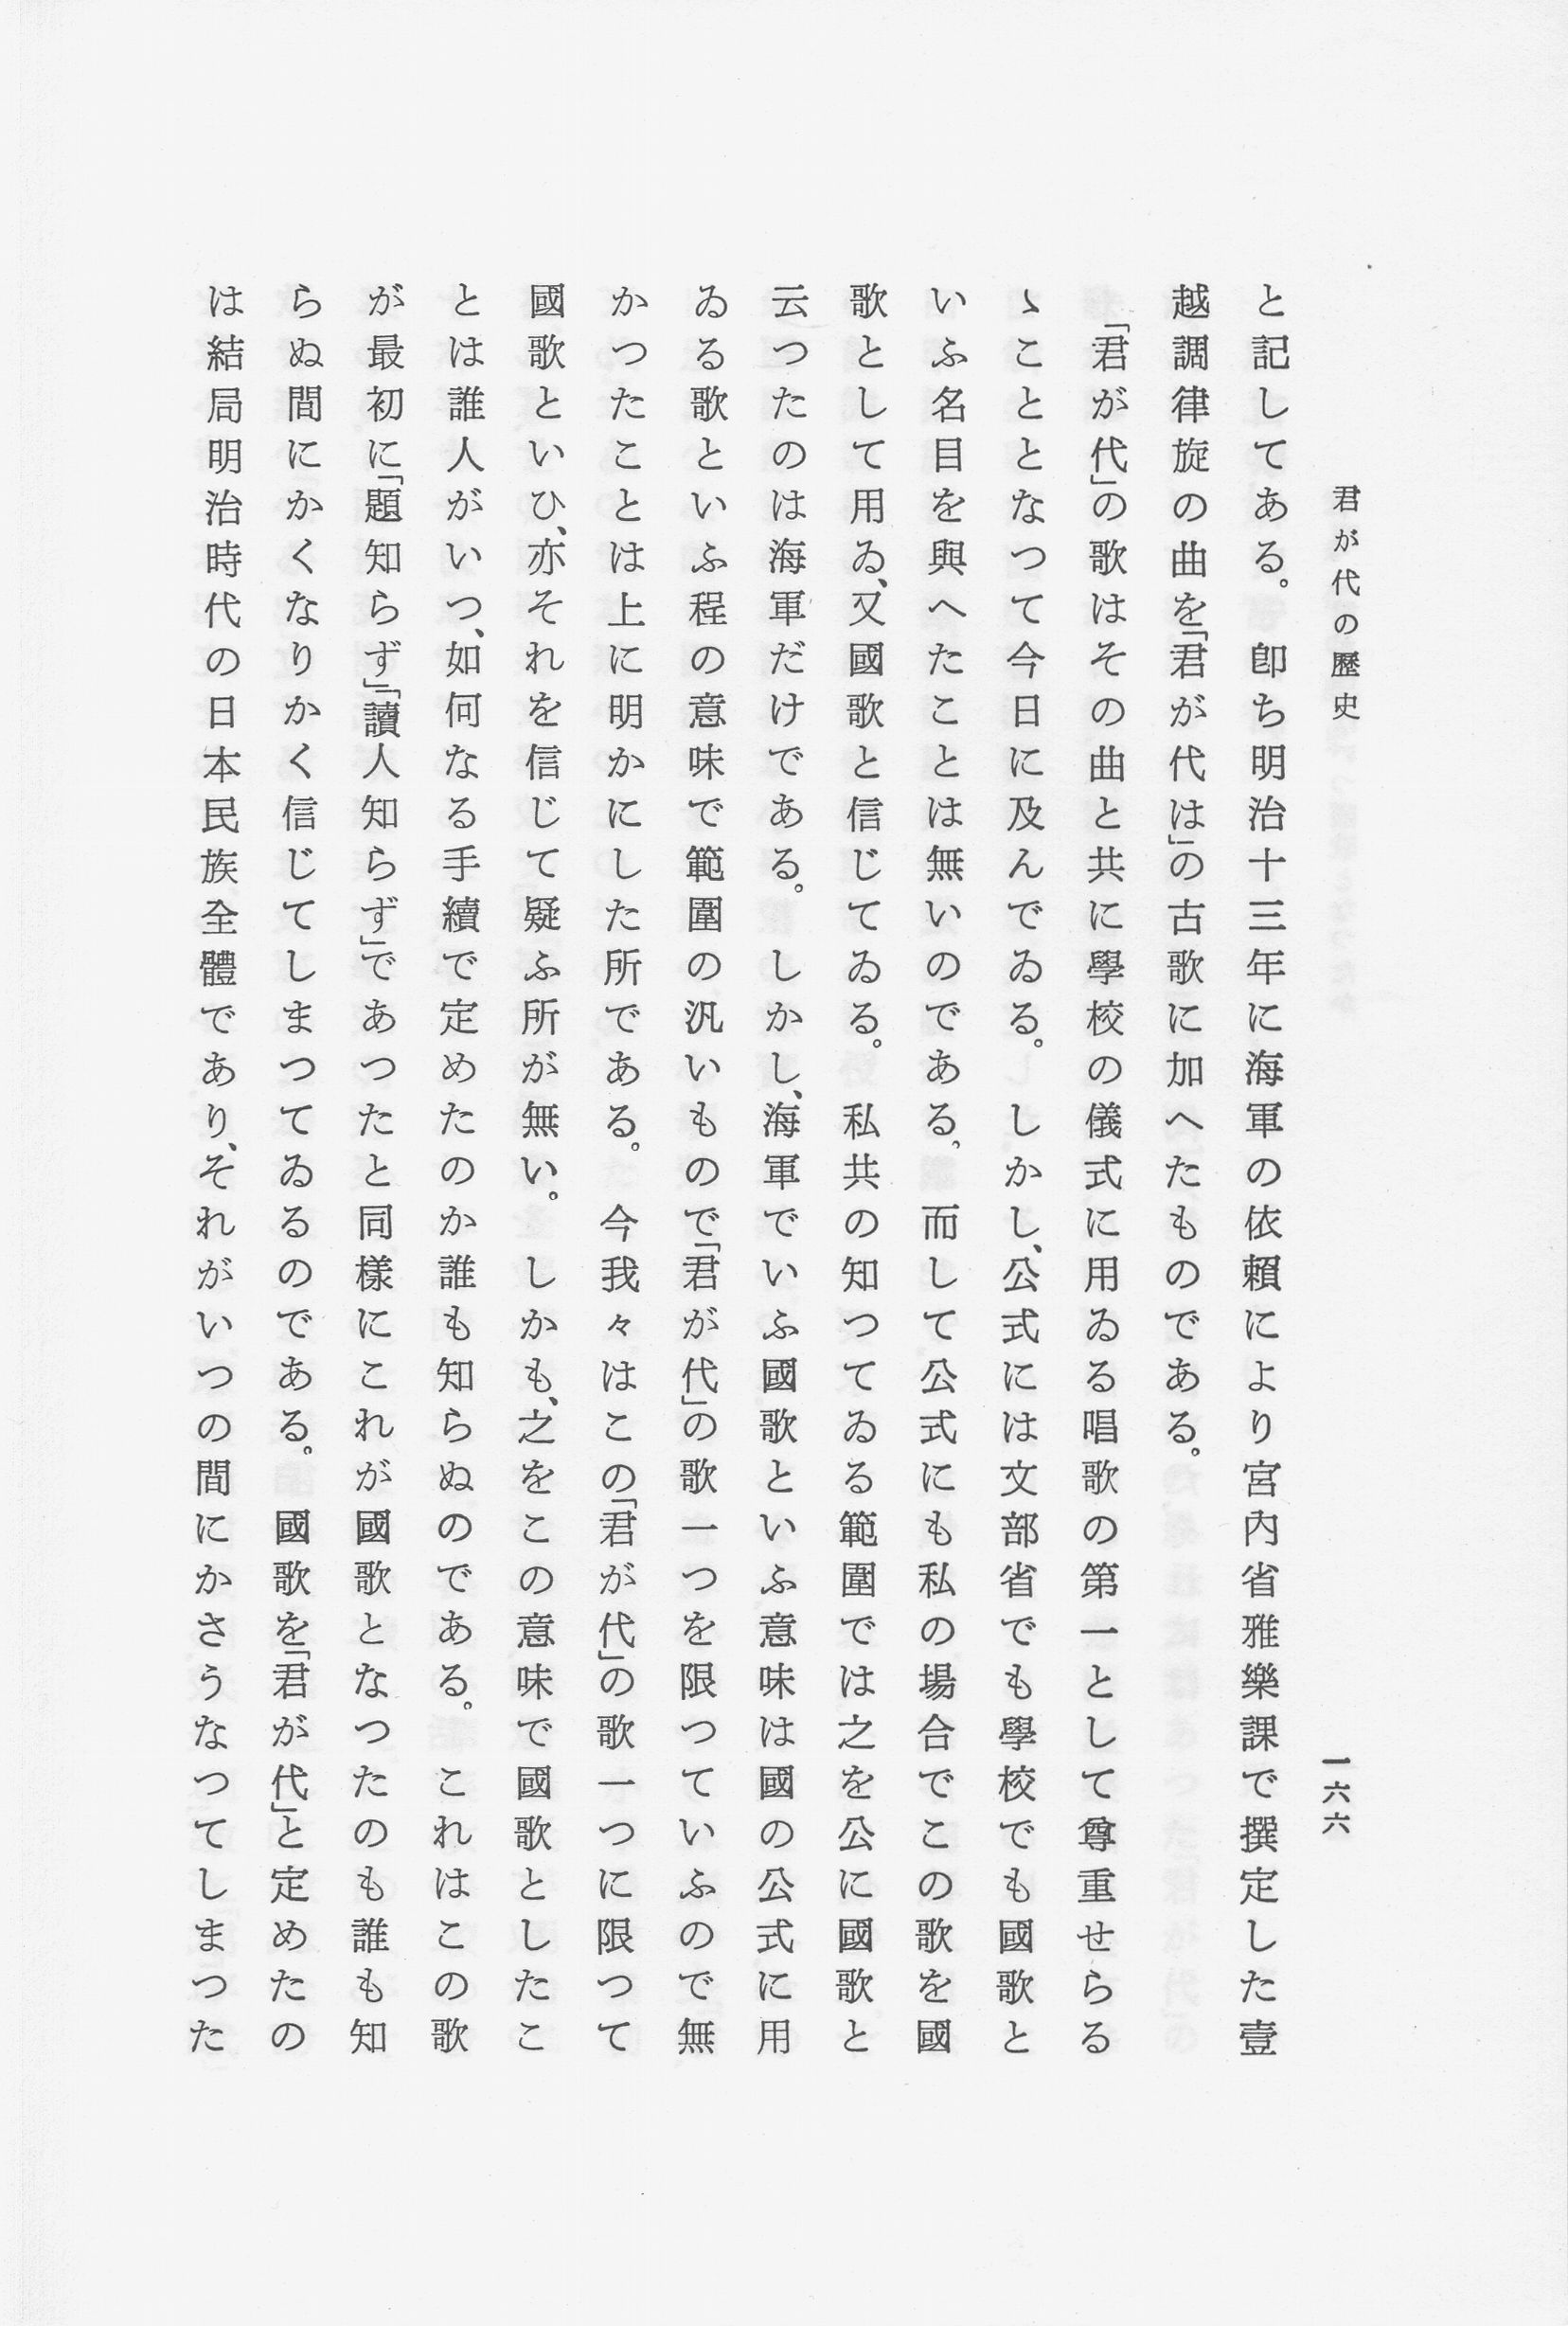 君が代の歷史
一六六
と記してある。卽ち明治十三年に海軍の依賴により宮內省雅樂課で撰定した壹
越調律旋の曲を「君が代は」の古歌に加へたものである。
「君が代」の歌はその曲と共に學校の儀式に用ゐる唱歌の第一として尊重せらる
ゝこととなつて今日に及んでゐる。しかし、公式には文部省でも學校でも國歌と
いふ名目を與へたことは無いのである。而して公式にも私の場合でこの歌を國
歌として用ゐ、又國歌と信じてゐる。私共の知つてゐる範圍では之を公に國歌と
云つたのは海軍だけである。しかし、海軍でいふ國歌といふ意味は國の公式に用
ゐる歌といふ程の意味で範圍の汎いもので「君が代」の歌一つを限つていふので無
かつたことは上に明かにした所である。今我々はこの「君が代」の歌一つに限つて
國歌といひ、亦それを信じて疑ふ所が無い。しかも、之をこの意味で國歌としたこ
とは誰人がいつ、如何なる手續で定めたのか誰も知らぬのである。これはこの歌
が最初に「題知らず」「讀人知らず」であつたと同樣にこれが國歌となつたのも誰も知
らぬ間にかくなりかく信じてしまつてゐるのである。國歌を「君が代」と定めたの
は結局明治時代の日本民族全體であり、それがいつの間にかさうなつてしまつた